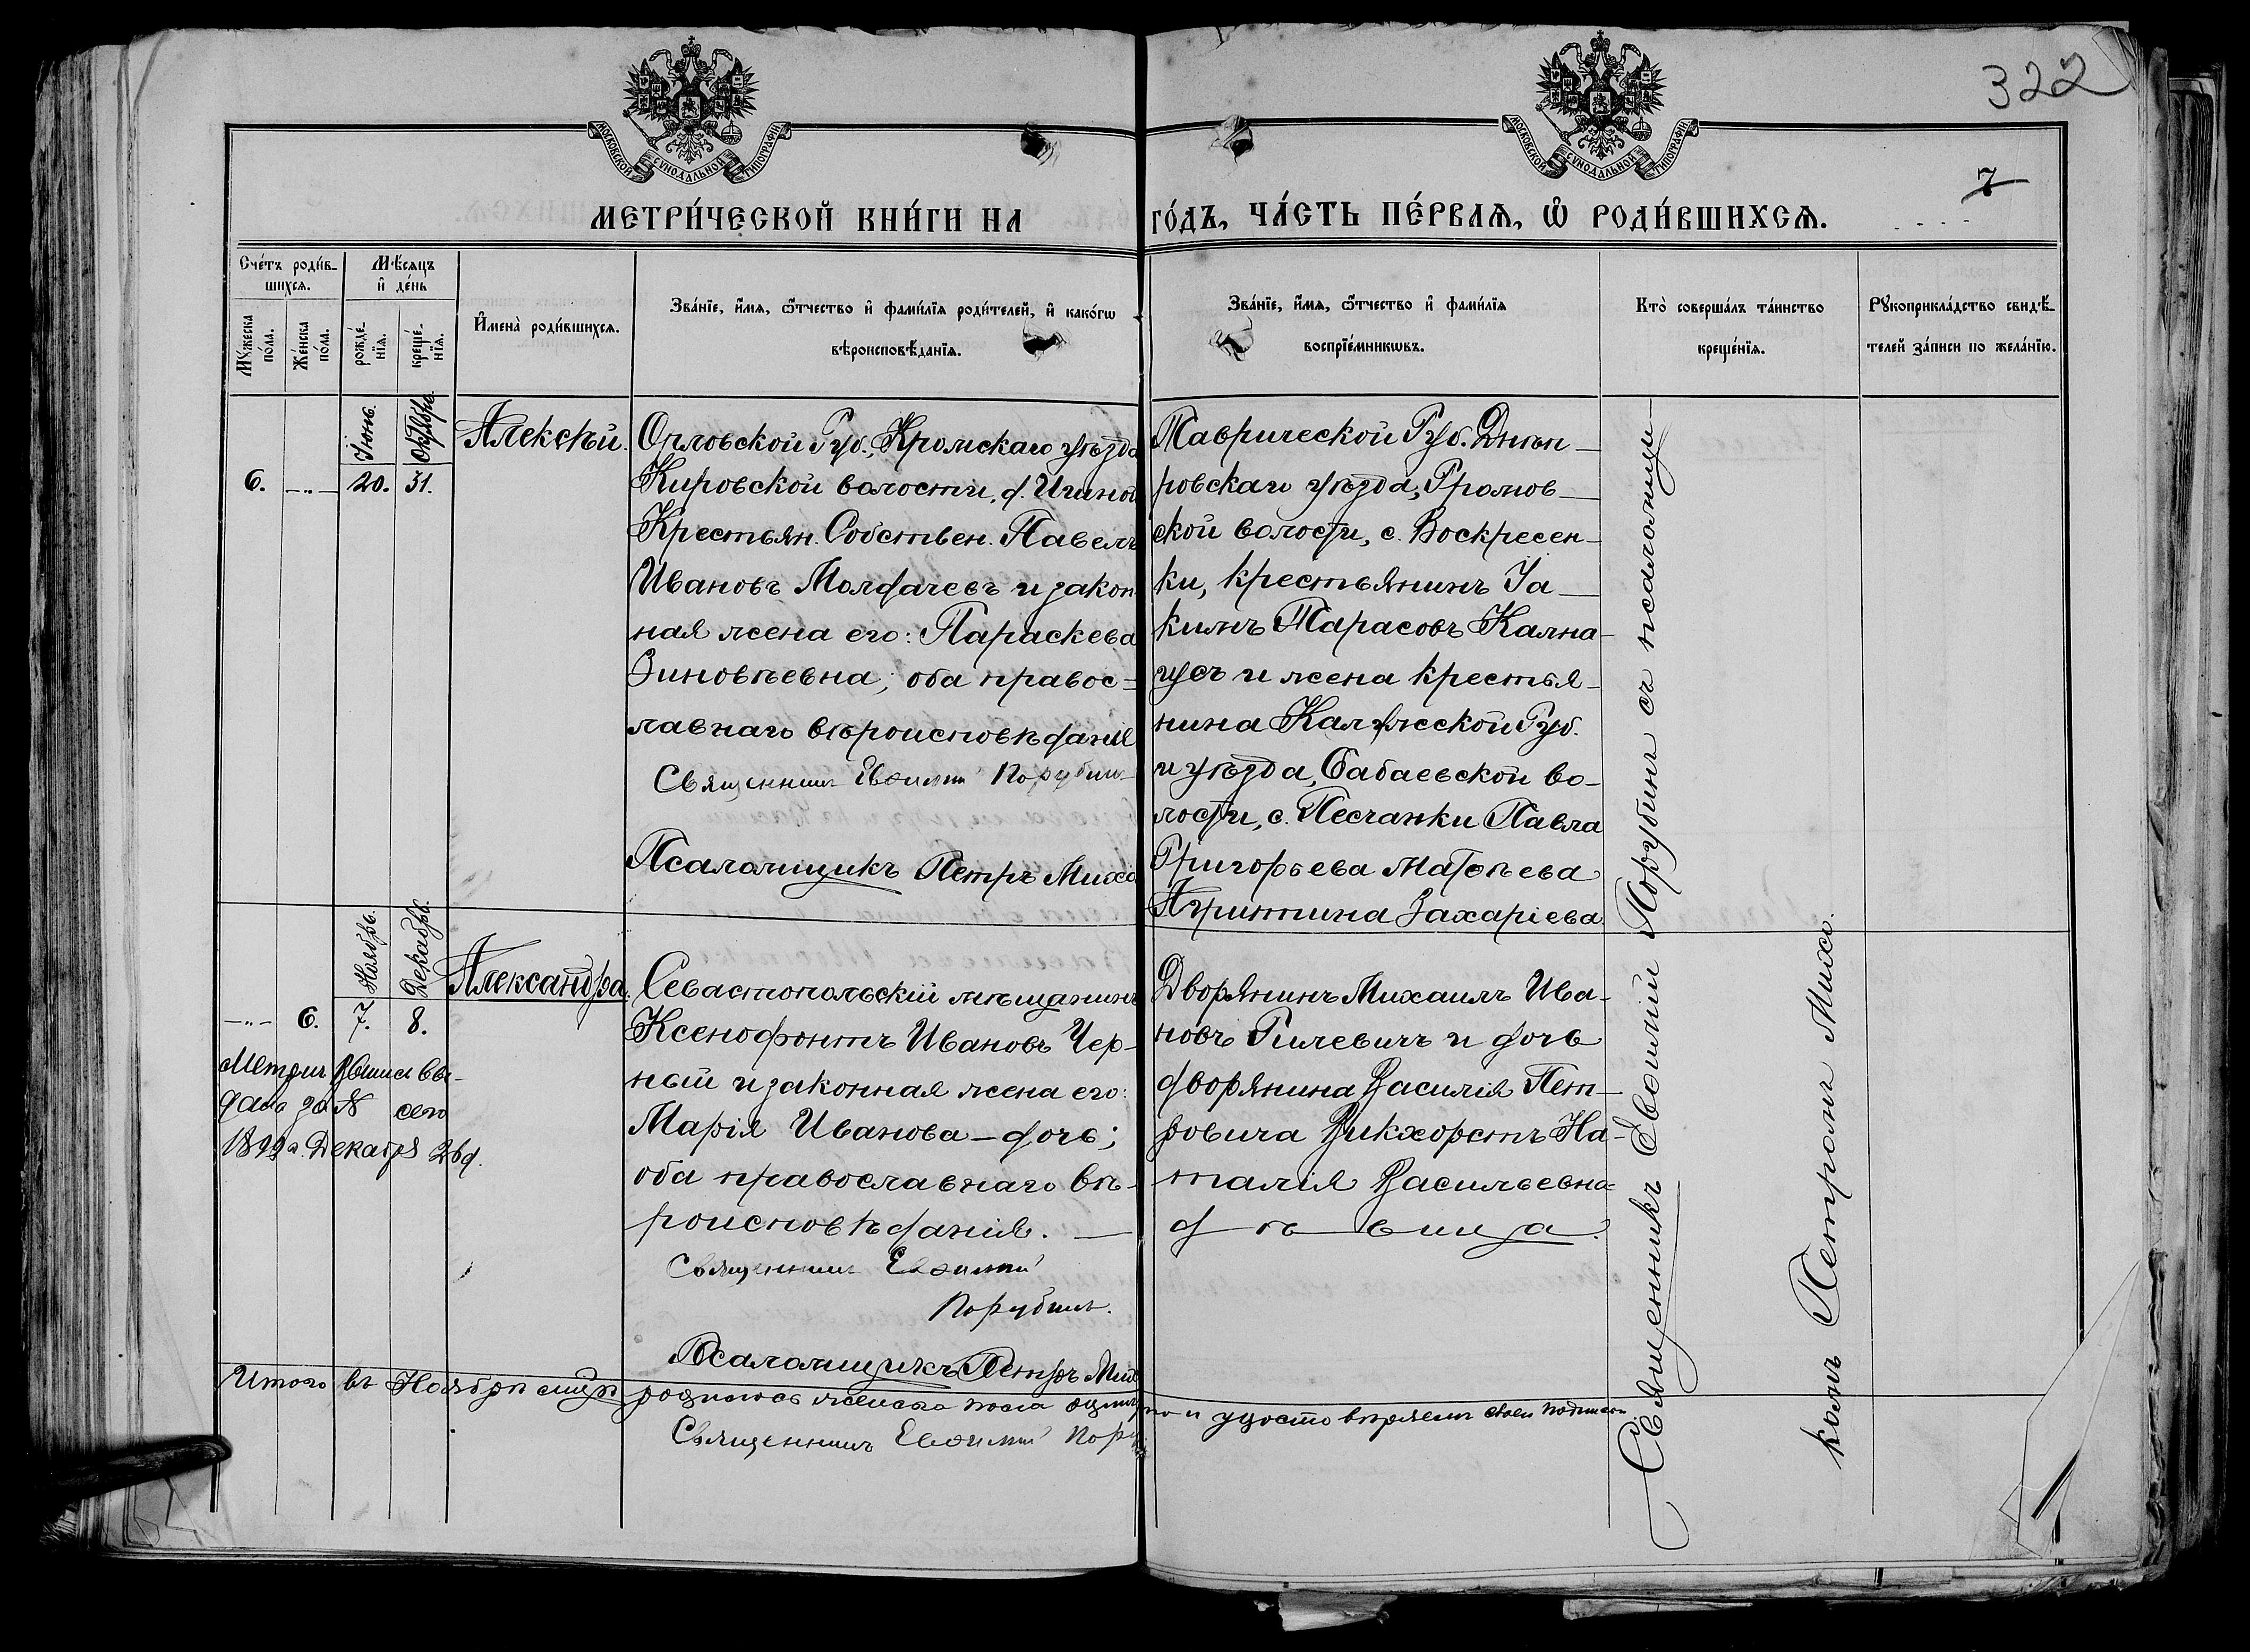 322
7
МОСКОВСКОЙ СѴНОДАЛЬНОЙ ТИПОГРАФІИ
МОСКОВСКОЙ СѴНОДАЛЬНОЙ ТИПОГРАФІИ
МЕТРИ́ЧЕСКОЙ КНИ́ГИ НА
ГО́ДЪ, ЧА́СТЬ ПЕ́РВАѦ, Ѡ҆ РОДИ́ВШИХСѦ.
Сче́тъ роди́в-
шихсѧ.
Мꙋ́жеска по́ла.
Же́нска по́ла.
Мѣ́сѧцъ
и҆ де́нь
рожде́-
нїѧ.
креще́-
нїѧ.
И҆мена̀ роди́вшихсѧ.
Зва́нїе, и҆́мѧ, ѻ҆́тчество и҆ фами́лїѧ роди́телей, и҆ како́гѡ
вѣроисповѣ́данїѧ.
Зва́нїе, и҆́мѧ, ѻ҆́тчество и҆ фами́лїѧ
воспрїе́мникѡвъ.
Кто̀ соверша́лъ та́инство
креще́нїѧ.
Рꙋкоприкла́дство свидѣ́-
телей за́писи по жела́нїю.
6.
Іюнь.
20.
Октябрь.
31.
Алексѣй.
Орловской Губ., Кромскаго уѣзда
Кировской волости, д.
Крестьян. Собствен. Павелъ
Ивановъ Молдачевъ и закон-
ная жена его: Параскева
Зиновьевна; оба правос=
лавнаго вѣроисповѣданія
Священникъ Евѳимій Порубинъ
Псаломщикъ Петръ Михо
Таврической Губ. Днѣп-
ровскаго уѣзда, Громов-
ской волости, с. Воскресен-
ки, крестьянинъ Іа-
кимъ Тарасовъ Кална-
усъ и жена крестья-
нина Калужской Губ.
и уѣзда, Бабаевской во-
лости, с. Песчанки Павла
Григорьева Матѳеева
Агрипина Захаріева.
Священникъ Евѳимій Порубинъ съ псаломщи-
комъ Петромъ Михо.
6.
Ноябрь.
7.
Декабрь.
8.
Александра.
Метрич. Выпись вы-
дана за № сего
1899 г. Декабря 26 д.
Севастопольскій мѣщанинъ
Ксенофонтъ Ивановъ Чер-
ный и законная жена его:
Марія Иванова-дочь;
оба православнаго вѣ-
роисповѣданія.
Священникъ Евѳимій
Порубинъ.
Псаломщикъ Петръ Михо
Дворянинъ Михаилъ Ива-
новъ Гилевичъ и дочь
дворянина Василія Пет-
ровича Викхорстъ На-
талія Васильевна
дѣвица.
Итого въ Ноябрѣ родилось женска пола и удостовѣряемъ своею подписью
Священникъ Евѳимій Пору